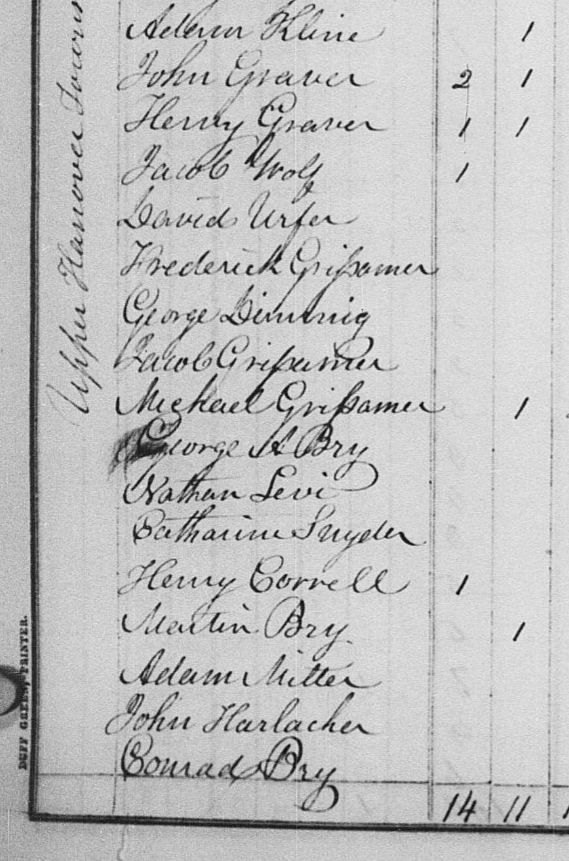 Upper Hanover Towns
Adam Kline 1
John Graver 2 1
Henry Graver 1 1
Jacob Wolf 1
David Urfer
Frederick Grissamer
George Dimmig
Jacob Grissamer
Michael Grissamer 1
George A Bry
Nathan Levi
Catharine Snyder
Henry Correll 1
Martin Bry 1
Adam Miller
John Harlacher
Conrad Bry
14 11
DUFF GREEN, PRINTER.